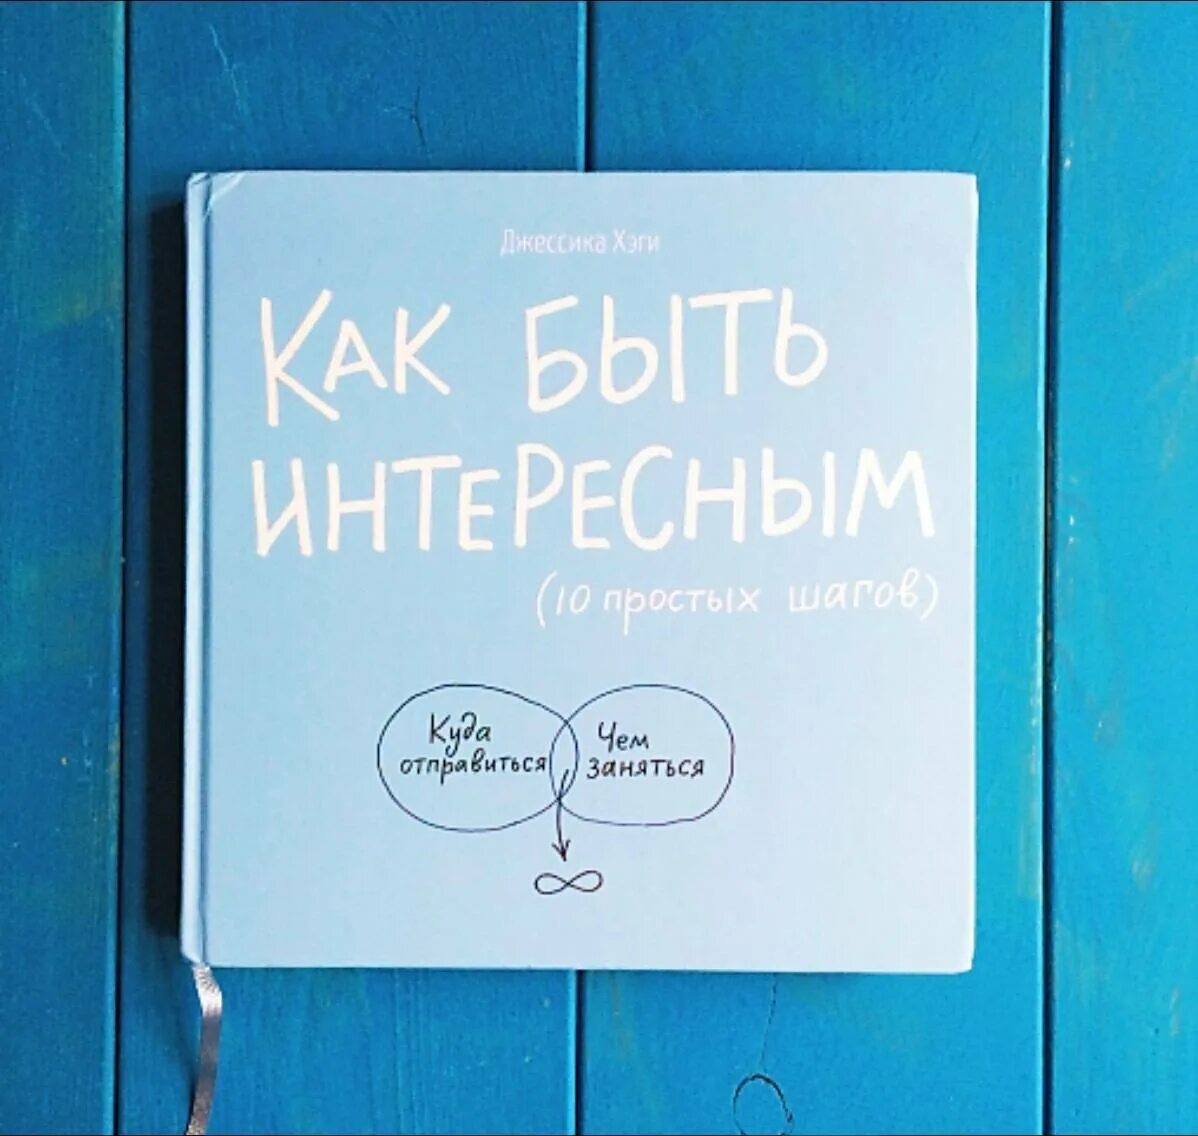 Джессика Хэги
КАК БЫТЬ
ИНТЕРЕСНЫМ
(10 простых шагов)
Куда
отправиться
Чем
заняться
∞